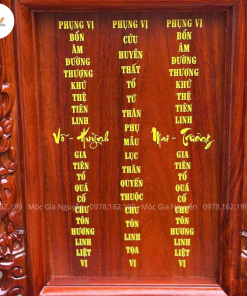 PHỤNG VỊ
BỔN
ÂM
ĐƯỜNG
THƯỢNG
KHỨ
THỆ
TIÊN
LINH
Võ - Huỳnh
GIA
TIÊN
TỔ
QUÁ
CỐ
CHƯ
TÔN
HƯƠNG
LINH
LIỆT
VỊ
PHỤNG VỊ
CỬU
HUYỀN
THẤT
TỔ
TỨ
THÂN
PHỤ
MẪU
LỤC
THÂN
QUYẾN
THUỘC
CHƯ
TÔN
LINH
TỌA
VỊ
PHỤNG VỊ
BỔN
ÂM
ĐƯỜNG
THƯỢNG
KHỨ
THỆ
TIÊN
LINH
Mai - Trương
GIA
TIÊN
TỔ
QUÁ
CỐ
CHƯ
TÔN
HƯƠNG
LINH
LIỆT
VỊ
Mộc Gia Nguyễn - 0978.162.199